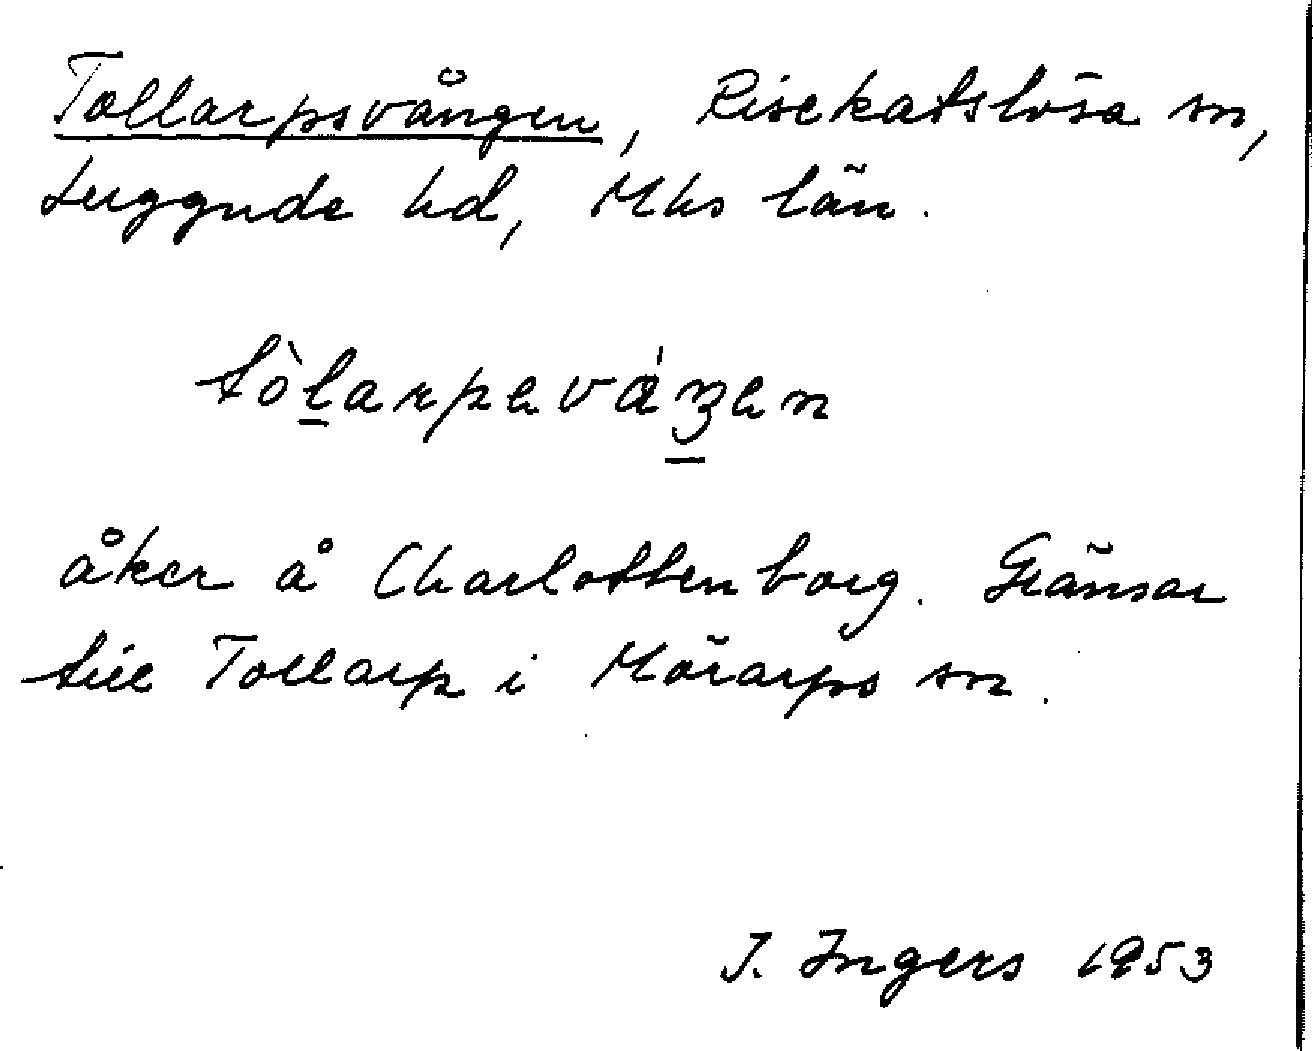 Tollarpsvången, Risekatslösa sn,
Luggude hd, Mhs län.
tòlarpəváŋən
åker å Charlottenborg. Gränsar
till Tollarp i Mörarps sn.
I. Ingers 1953